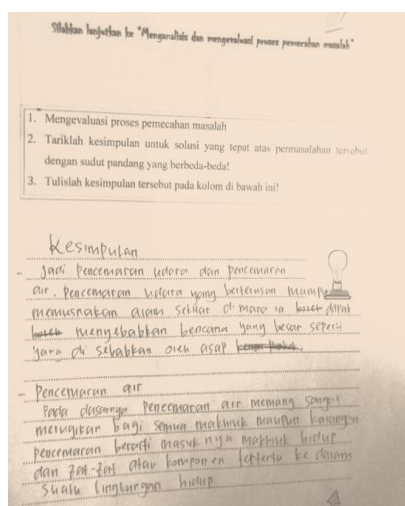 Silahkan lanjutkan ke "Menganalisis dan mengevaluasi proses pemecahan masalah"
1. Mengevaluasi proses pemecahan masalah
2. Tariklah kesimpulan untuk solusi yang tepat atas permasalahan tersebut
dengan sudut pandang yang berbeda-beda!
3. Tulislah kesimpulan tersebut pada kolom di bawah ini!
Kesimpulan
- Jadi Pencemaran udara dan pencemaran
air. Pencemaran udara yang berterusan mampu
memusnakan alam sekitar di mana ia dapat
menyebabkan bencana yang besar seperti
yang di sebabkan oleh asap
- Pencemaran air
Pada dasarnya Pencemaran air memang sangat
merugikan bagi semua makhluk maupun kalangan
pencemaran berarti masuk nya makhluk hidup
dan zat-zat atau komponen tertentu ke dalam
suatu lingkungan hidup